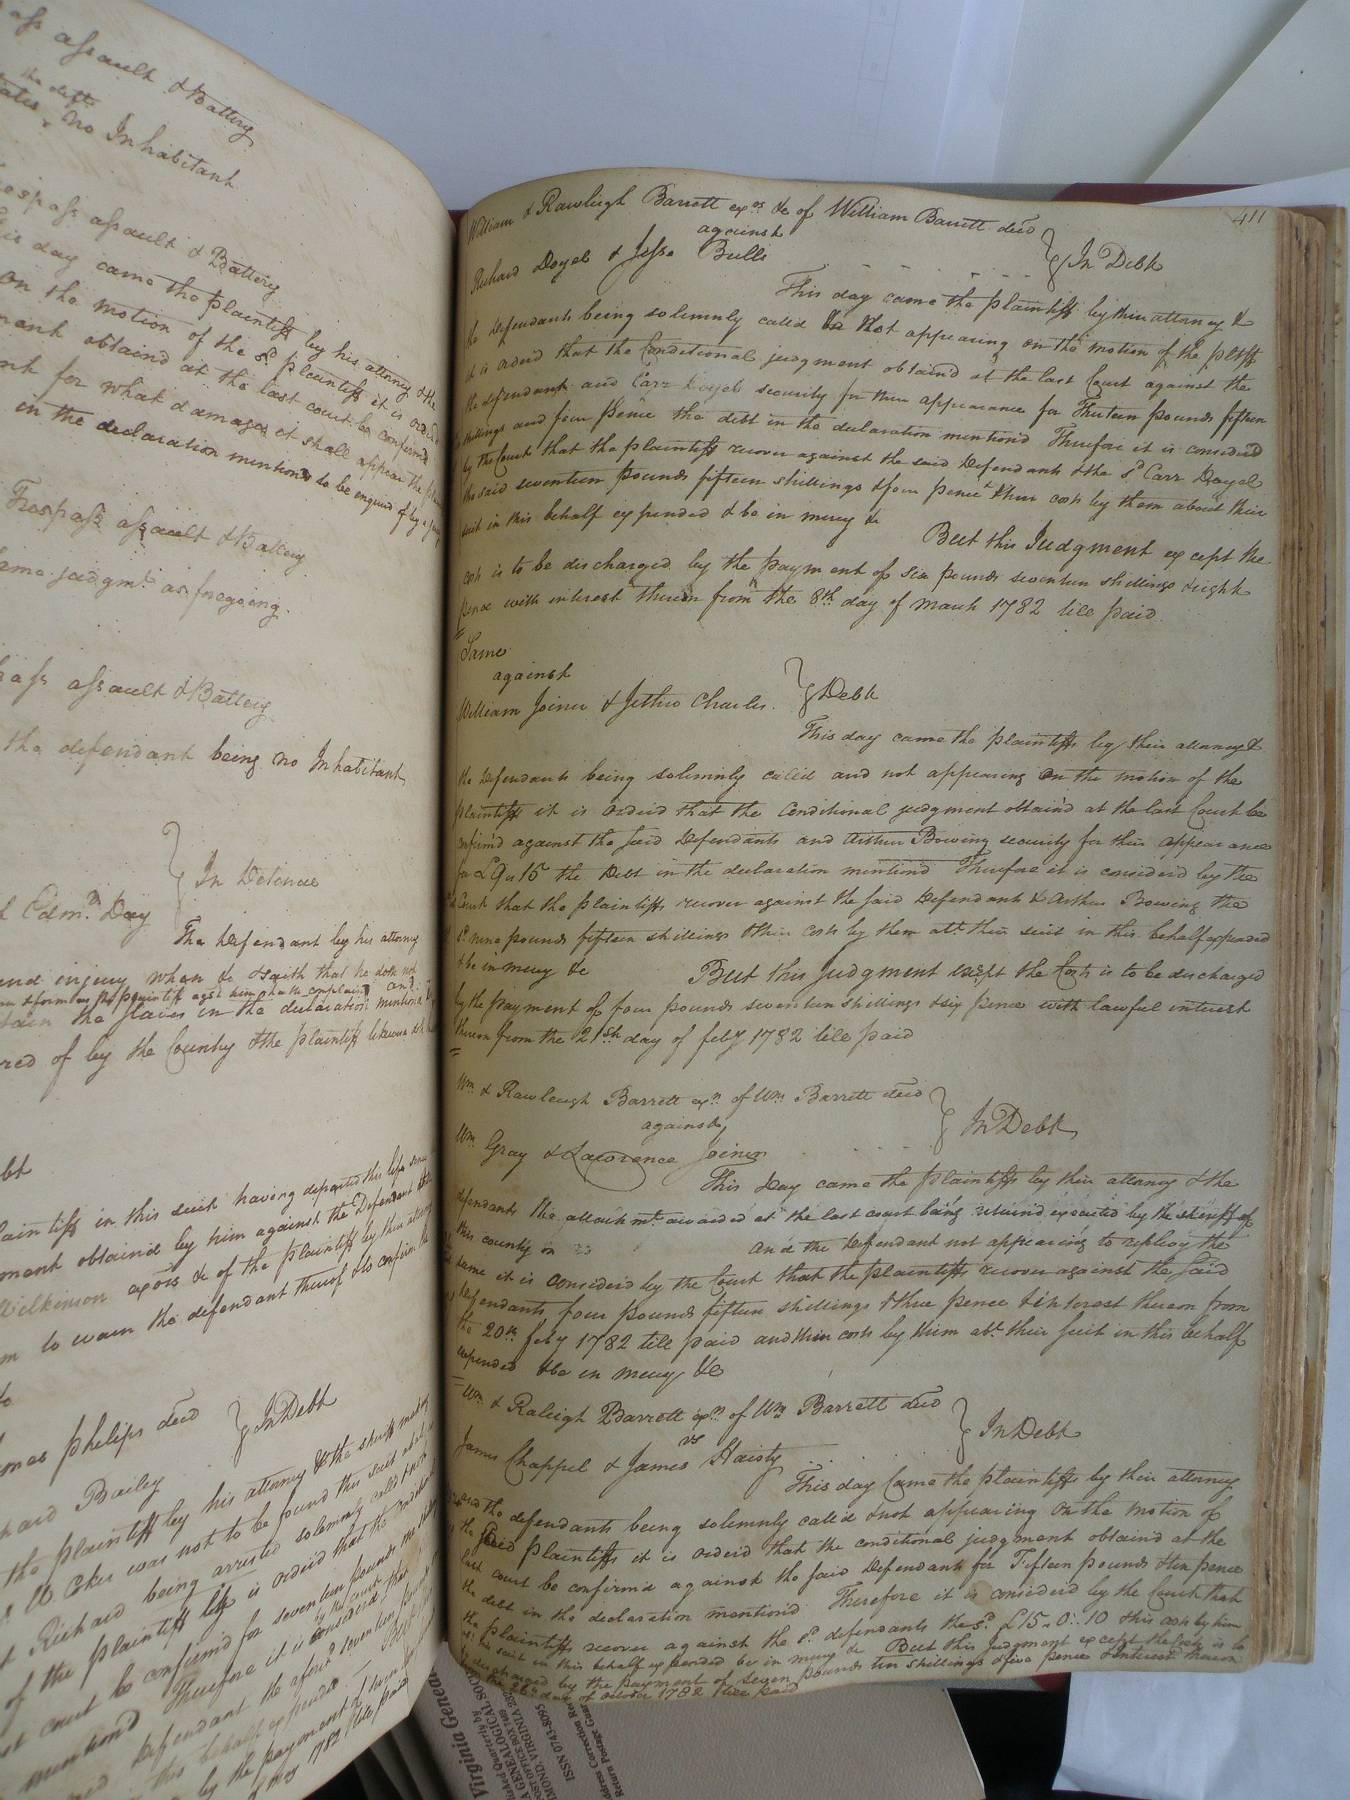 ass assault & Battery
the deft.
no Inhabitant
Trespass assault & Battery
this day came the plaintiff by his attorney & the
on the motion of the sd. plaintiff it is orderd
obtaind at the last court be confirmed
for what damages it shall appear the
in the declaration mentiond to be enquired of by a jury
Trespass assault & Battery
same judgmt. as foregoing.
assault & Battery
the defendant being no Inhabitant
In Detenue
Edmd. Day
The Defendant by his attorney
and injury when &c & saith that he doth not
the slaves in the declaration mentiond
of by the Country & the plaintiff likewise
plaintiff in this suit having departed this life since
obtaind by him against the Defendant
Wilkinson exors &c of the plaintiff by their attorney
to warn the defendant thereof & to confirm the
Philips decd
In Debt
Bailey
the plaintiff by his attorney & the sheriff
was not to be found this suit
Richard being arrested solemnly calld
of the plaintiff it is orderd that the
court be confirmed for seventeen pounds
by the court
Therefore it is considerd
Defendant the aforesd seventeen pounds
this behalf expended
by the payment of
1782 till paid
411
William & Rawleigh Barrett exrs &c of William Barrett decd
against
In Debt
Richard Doyel & Jesse Bulls
This day came the plaintiff by their attorney &
the Defendants being solemnly calld & not appearing on the motion of the pltff
it is orderd that the Conditional judgment obtaind at the last Court against the
the defendants and Carr Doyel security for their appearance for Thirteen pounds fifteen
shillings and four pence the debt in the declaration mentiond Therefore it is considerd
by the Court that the plaintiff recover against the said Defendants & the sd Carr Doyel
the said seventeen pounds fifteen shillings & four pence & their costs by them about their
suit in this behalf expended & be in mercy &c But this Judgment except the
costs is to be discharged by the payment of six pounds seventeen shillings & eight
pence with interest thereon from the 8th day of march 1782 till paid
Same
against
Debt
William Joiner & Jethro Charles.
This day came the plaintiffs by their attorney &
the Defendants being solemnly calld and not appearing on the motion of the
plaintiffs it is orderd that the Conditional judgment obtaind at the last Court be
confirmd against the said Defendants and Arthur Bowing security for their appearance
for £9..15 the Debt in the declaration mentiond Therefore it is considerd by the
Court that the plaintiffs recover against the said Defendants & Arthur Bowing the
sd. nine pounds fifteen shillings & their costs by them abt. their suit in this behalf expended
& be in mercy &c But this judgment except the Costs is to be discharged
by the payment of four pounds seventeen shillings & six pence with lawful interest
thereon from the 21st day of feby 1782 till paid
Wm & Rawleigh Barrett exrs of Wm Barrett decd
against
In Debt
Wm Gray & Lawrence Joiner
This day came the plaintiffs by their attorney & the
defendants the attachmt. awarded at the last court being returnd executed by the sheriff of
this county on and the Defendant not appearing to replevy the
same it is considerd by the Court that the plaintiffs recover against the said
Defendants four pounds fifteen shillings & three pence & interest thereon from
the 20th feby 1782 till paid and their costs by them abt. their suit in this behalf
expended & be in mercy &c
Wm & Raleigh Barrett exrs of Wm Barrett decd
vs
In Debt
James Chappel & James Haisty
This day Came the plaintiffs by their attorney
and the defendants being solemnly calld & not appearing on the motion of
the said plaintiffs it is orderd that the conditional judgment obtaind at the
last court be confirmd against the said Defendants for Fifteen pounds & ten pence
the debt in the declaration mentiond Therefore it is considerd by the Court that
the plaintiffs recover against the sd. defendants the sd. £15.0.10 & this costs by him
abt. his suit in this behalf expended & be in mercy &c But this Judgment except the costs is to
be discharged by the payment of seven pounds ten shillings & five pence & interest thereon
from the 26th day of October 1782 till paid
Virginia Genea
Quarterly by
GENEALOGICAL SOC
POST OFFICE BOX
MOND, VIRGINIA
ISSN 0743-8095
Address Correction Re
Return Postage Guar